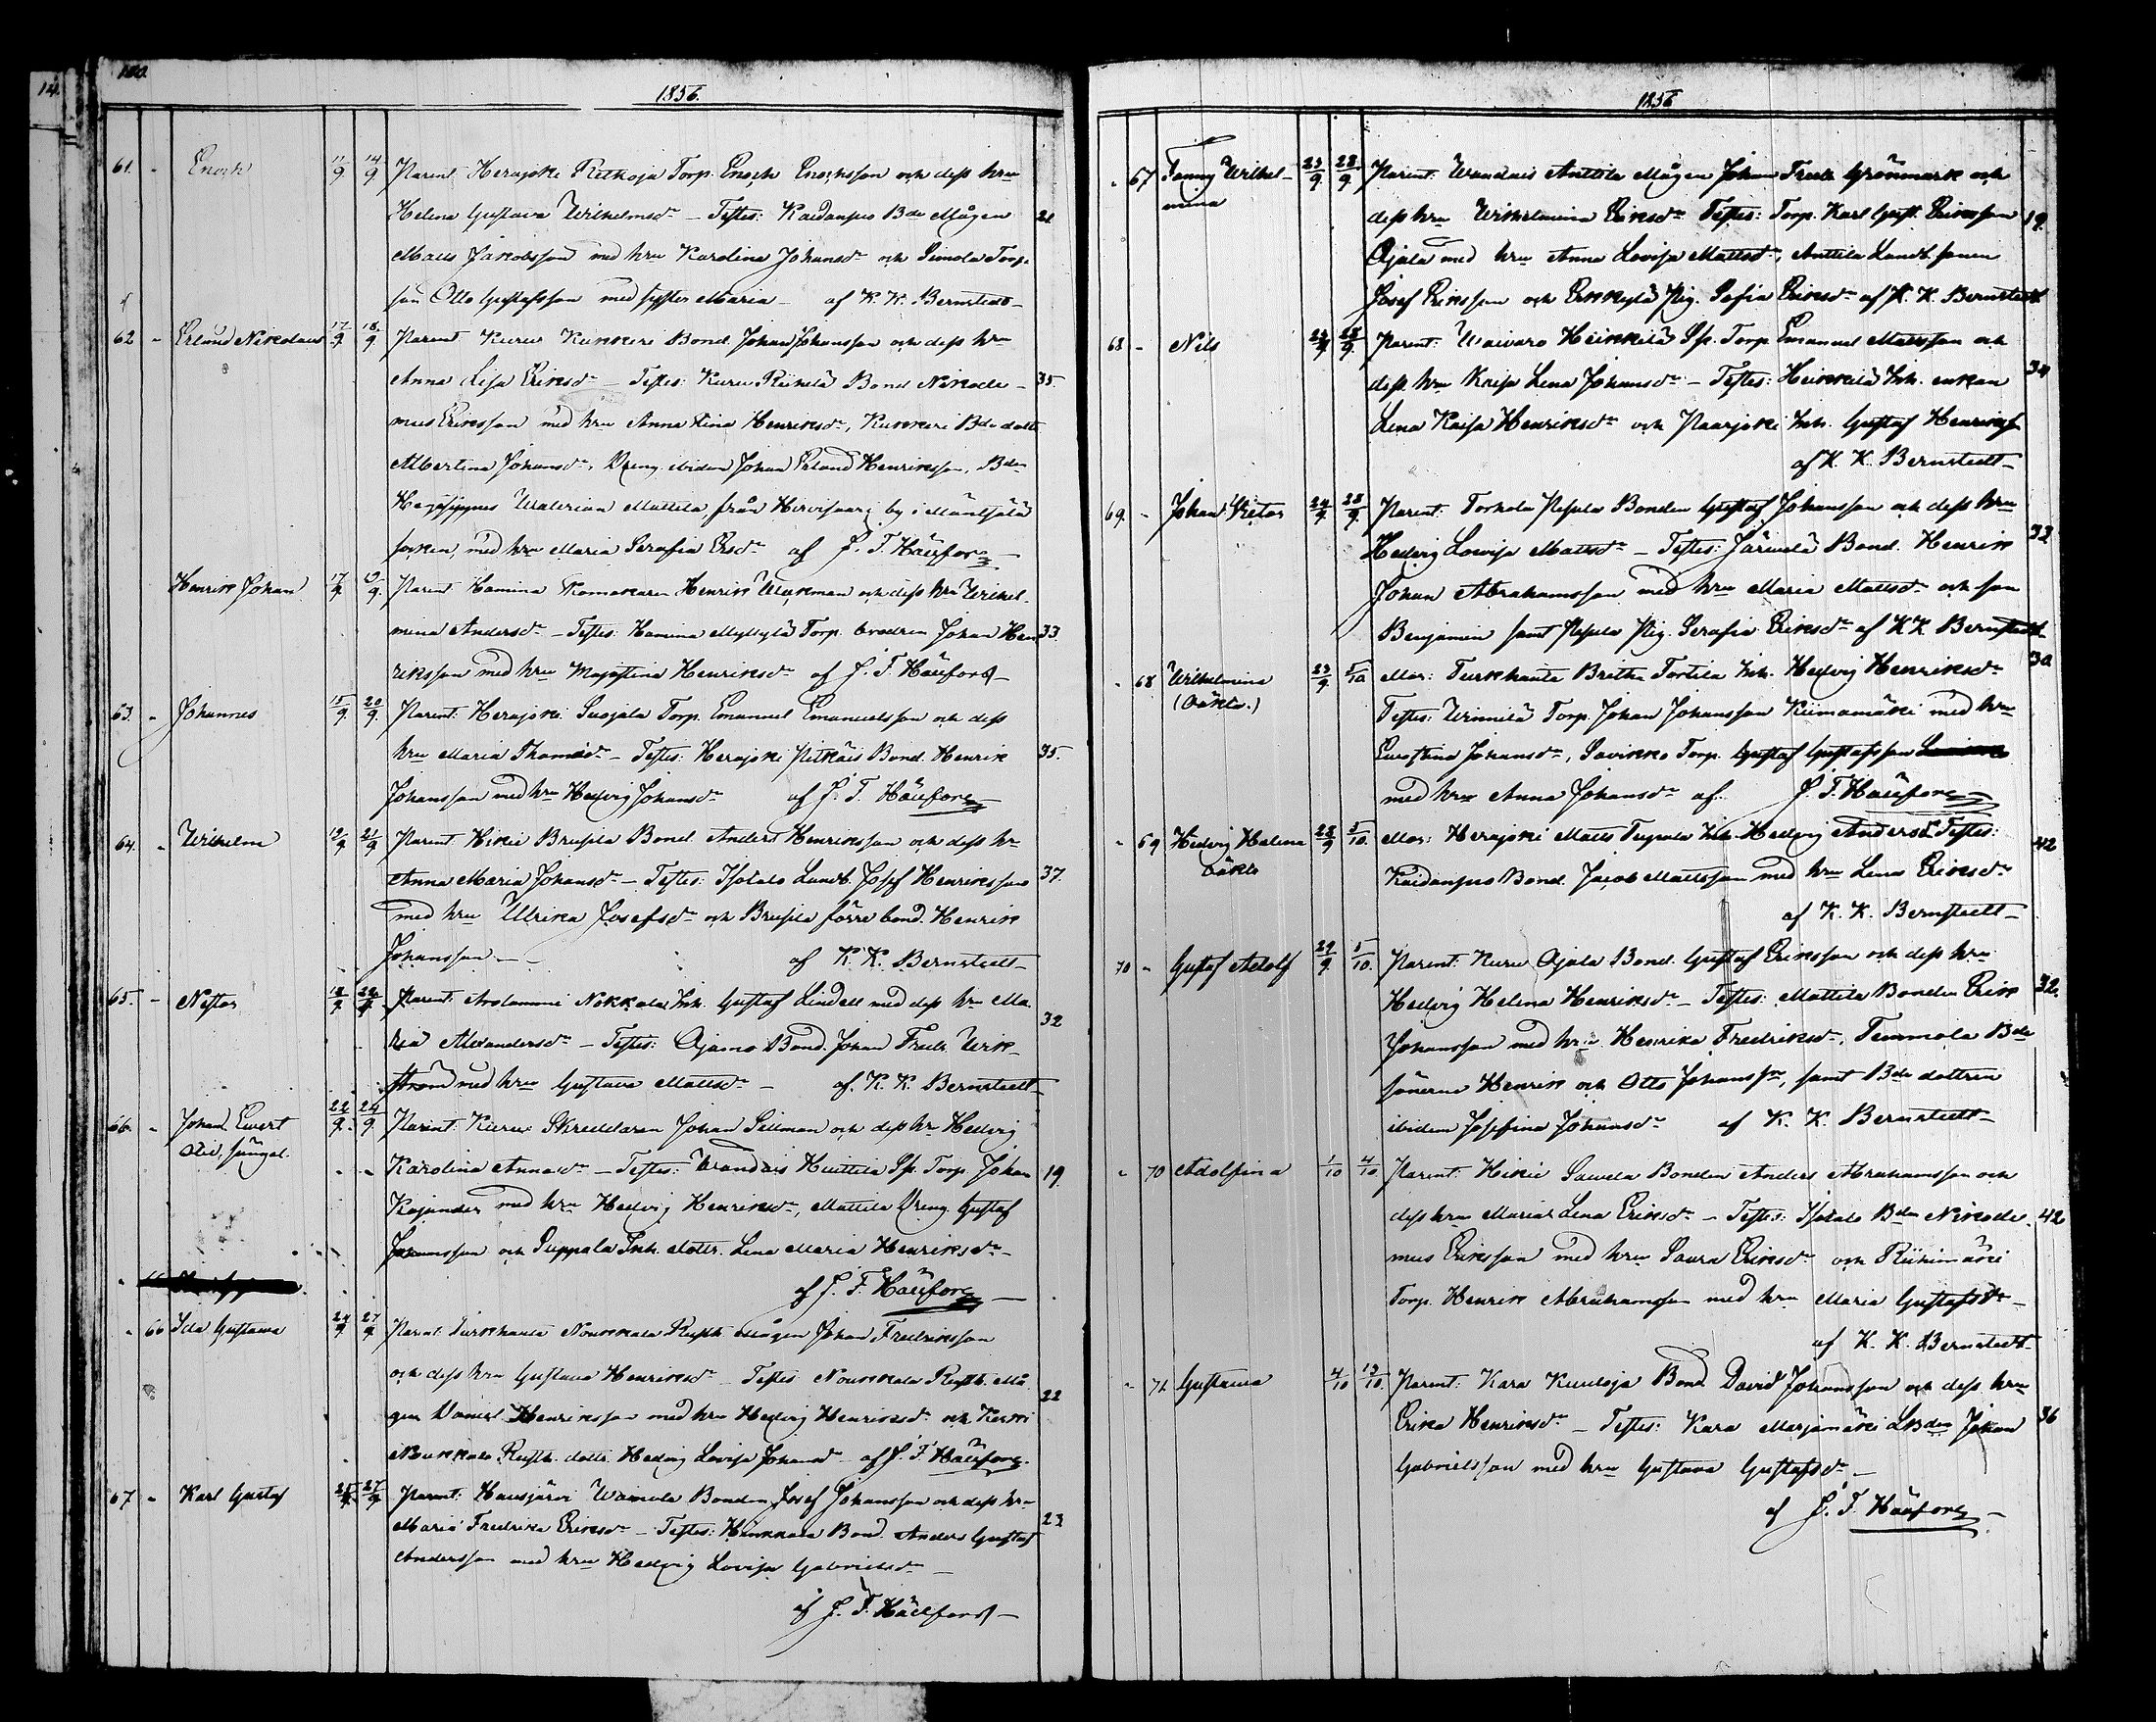 14.
180
1856.
61. - Enoch 11/9 14/9 Parent. Herajoki Ritkoja Torp. Enoch Enochsson och dess hru
Helena Gustava Wilhelmsdr – Testes: Kaidanpää Bde Mågen 21
Matts Jakobsson med hru Karolina Johansdr och Simola Torp.
son Otto Gustafsson med syster Maria – af K. K. Bernstedt –
62 - Erland Nikolaus 17/9 18/9 Parent Kuru Kunkeri Bond. Johan Johansson och dess hru
Anna Lisa Eriksdr – Testes: Kuru Rikilä Bond Nikode- 35.
mus Eriksson med hru Anna Stina Henriksdr, Kunkeri Bde dottr
Albertina Johansdr, Dreng ibidem Johan Erland Henriksson, Bden
Walerian Mattila, från Hirvihaara by i Mäntsälä
socken, med hru Maria Serafia Ersdr af J. T. Häufors
Henrik Johan 17/9 19/9 Parent Hamina Henrik och dess hru Wilhel-
mina Andersdr – Testes. Hamina Myllylä Torp. brodren Johan Hen- 33.
riksson med hru Majastina Henriksdr af J. T. Häufors –
63. - Johannes 15/9 20/9 Parent: Herajoki Susjala Torp. Emanuel Emanuelsson och dess
hru Maria Thomasdr – Testes: Herajoki Pitkäis Bond. Henrik 35.
Johansson med hru Hedvig Johansdr af J. T. Häufors
64. - Wilhelm 19/9 21/9 Parent Hikiä Brusila Bond. Anders Henriksson och dess hr
Anna Maria Johansdr – Testes: Isotalo Landb. Josef Henriksson 37.
med hru Ulrika Josefsdr och Brusila förre bond. Henrik
Johansson – af K. K. Bernstedt –
65. - Nestor 18/9 22/9 Parent: Arolammi Nokkala Inh. Gustaf Lindell med dess hr Ma-
ria Alexandersdr – Testes: Ojamo Bond. Johan Fredr. Wik- 32
ström med hru Gustava Mattsdr – af K. K. Bernstedt –
66. - Johan Evert 22/9 24/9 Parent: Kuru Skreddaren Johan Sillman och dess hr Hedvig
Karolina Annasdr – Testes: Wandais Huittila Sp. Torp. Johan 19.
Kajander med hru Hedvig Henriksdr, Mattila Dreng Gustaf
Johansson och Puppala Inh. dottr. Lena Maria Henriksdr –
af J. T. Häufors –
- 66 Ida Gustava 24/9 27/9 Parent. Turkhauta Noukkala Rusth. Mågen Johan Fredriksson
och dess hru Gustava Henriksdr – Testes Noukkala Rusth. Må- 22
gen Daniel Henriksson med hru Hedvig Henriksdr och
Noukkala Rusth. dottr. Hedvig Lovisa Johansdr – af J. T. Häufors.
67. - Karl Gustaf 25/9 27/9 Parent: Hausjärvi Bonden Josef Johansson och dess hru
Maria Fredrika Eriksdr – Testes: Hinkkala Bond. Anders Gustaf 23
Andersson med hru Hedvig Lovisa Gabrielsdr –
af J. T. Häufors –
1856
- 67 Fanny Wilhel- 23/9 28/9 Parent: Wandais Anttila Mågen Johan Fredr. Grönmark och
mina dess hru Wilhelmina Eriksdr Testes: Torp. Karl Gust. Eriksson 19.
Ojala med hru Anna Lovisa Mattsdr, Anttila Landb. sonen
Josef Eriksson och Erkkylä Pig. Sofia Eriksdr af K. K. Bernstedt
68 - Nils 28/9 Parent: Waivaro Heikkilä Sp. Torp Emanuel Mattsson och
dess hru Kaisa Lena Johansdr – Testes: Heikkilä Inh. enkan 34
Lena Kaisa Henriksdr och Paarjoki Inh. Gustaf Henriksson
af K. K. Bernstedt –
69. - Johan Viktor 24/9 28/9 Parent. Torhola Pesula Bonden Gustaf Johansson och dess hru
Hedvig Lovisa Mattsdr – Testes: Järvelä Bond. Henrik 32
Johan Abrahamsson med hru Maria Mattsdr och son
Benjamin samt Pesula Pig. Serafia Eriksdr af K. K. Bernstedt
- 68 Wilhelmina 23/9 5/10 Mor: Turkhauta Britha Tortila Inh. Hedvig Henriksdr 30
(Oäkta.) Testes: Torp. Johan Johansson Kiimamäki med hru
Evastina Johansdr, Savikko Torp. Gustaf Gustafsson
med hru Anna Johansdr af J. T. Häufors
- 69 Hedvig Helena 28/9 5/10. Mor: Herajoki Matts Inh. Hedvig Andersdr Testes: 42
oäkta Kaidanpää Bond. Jacob Mattsson med hru Lena Eriksdr
af K. K. Bernstedt –
70 - Gustaf Adolf 29/9 5/10. Parent: Kuru Ojala Bond. Gustaf Eriksson och dess hru
Hedvig Helena Henriksdr – Testes: Mattila Bonden Erik 32.
Johansson med hru Henrika Fredriksdr, Temmola Bde
sönerna Henrik och Otto Johanssr, samt Bde dottren
ibidem Josefina Johansdr af K. K. Bernstedt –
- 70 Adolfina 1/10 4/10 Parent: Hikiä Sawela Bonden Anders Abrahamsson och
dess hru Maria Lena Eriksdr – Testes: Isotalo Bden Nikode- 42
mus Eriksson med hru Saara Eriksdr och Riihimäki
Torp. Henrik Abrahamsson med hru Maria Gustafsdr –
af K. K. Bernstedt –
- 71 Gustava 4/10 19/10. Parent: Kara Kuuloja Bond David Johansson och dess hru
Erika Henriksdr – Testes: Kara Marjamäki Johan 36
Gabrielsson med hru Gustava Gustafsdr –
af J. T. Häufors –